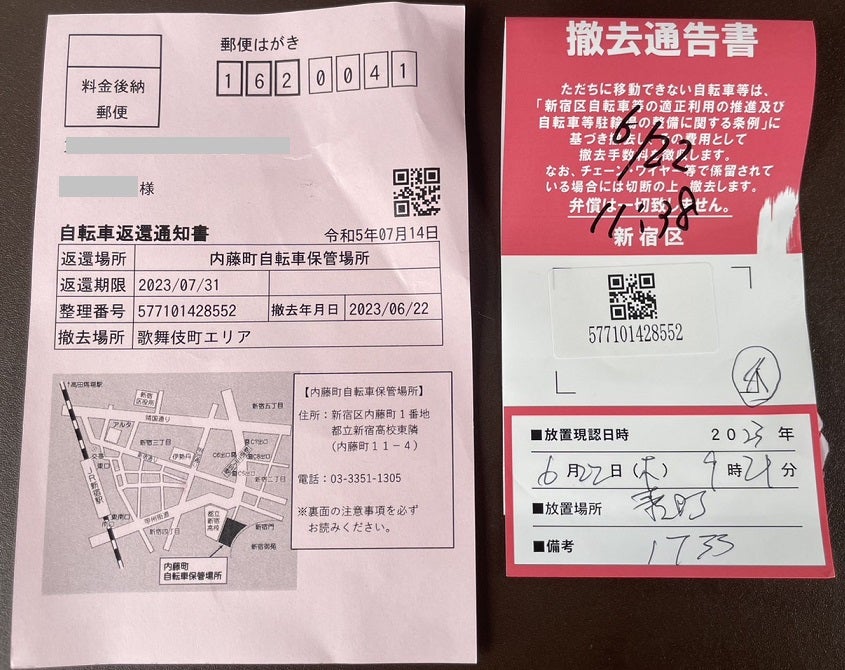 郵便はがき
料金後納
郵便
162 0041
様
自転車返還通知書
令和5年07月14日
返還場所 内藤町自転車保管場所
返還期限 2023/07/31
整理番号 577101428552 撤去年月日 2023/06/22
撤去場所 歌舞伎町エリア
高田馬場駅
新宿
区役所
靖国通り
新宿五丁目
アルタ
新宿三丁目
伊勢丹
新宿二丁目
東口
JR新宿駅
東南口
南口
甲州街道
新宿四丁目
都立
新宿
高校
新宿門
新宿御苑
内藤町
自転車保管場所
【内藤町自転車保管場所】
住所：新宿区内藤町1番地
都立新宿高校東隣
（内藤町11－4）
電話：03-3351-1305
※裏面の注意事項を必ず
お読みください。
撤去通告書
ただちに移動できない自転車等は、
「新宿区自転車等の適正利用の推進及び
自転車等駐輪場の整備に関する条例」に
基づき撤去し、その費用として
撤去手数料を徴収します。
なお、チェーン・ワイヤー等で係留されて
いる場合には切断の上、撤去します。
弁償は一切致しません。
新宿区
6/22
11:38
577101428552
■放置現認日時 2023年
6月22日(木) 9時21分
■放置場所
■備考 1733